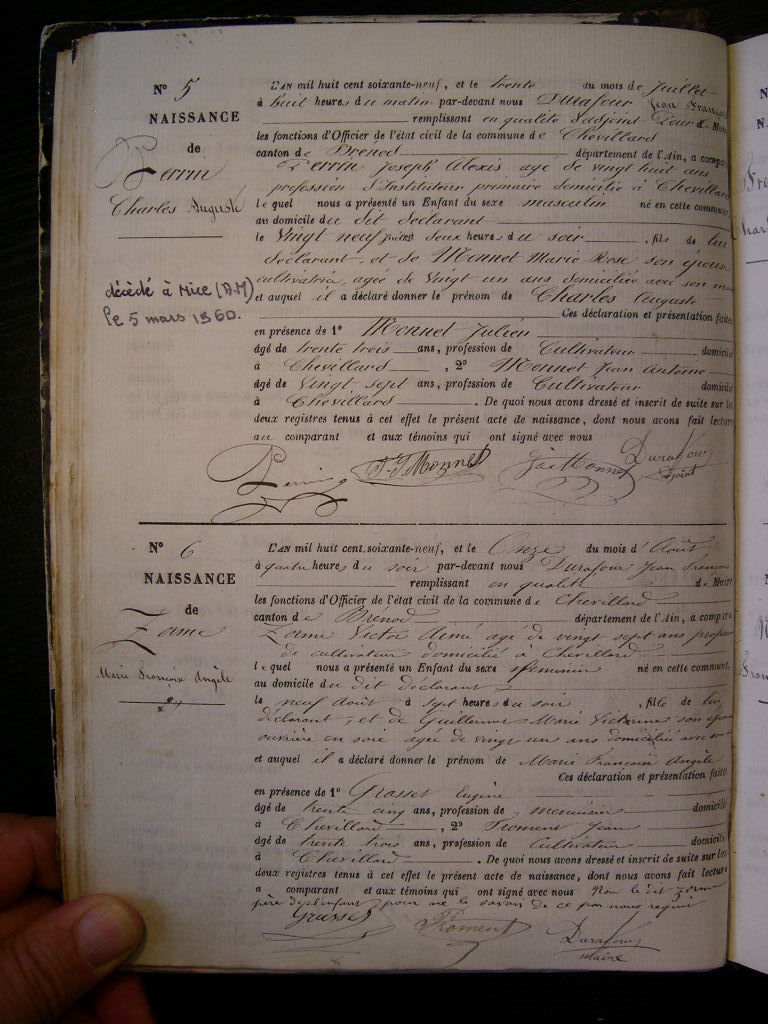 N° 5
NAISSANCE
de
Perrin
Charles Auguste
décédé à Nice (A.M)
le 5 mars 1960.
L'AN mil huit cent soixante-neuf, et le trente du mois de Juillet
à huit heures du matin par-devant nous Durafour Jean François
remplissant en qualité d'adjoint pour de Maire
les fonctions d'Officier de l'état civil de la commune de Chevillard
canton de Brénod département de l'Ain, a comparu
Perrin Joseph Alexis agé de vingt huit ans
profession d'Instituteur primaire domicilié à Chevillard
lequel nous a présenté un Enfant du sexe masculin né en cette commune
au domicile du dit déclarant
le vingt neuf juillet deux heures du soir, fils de lui
déclarant, et de Monnet Marie Rose son épouse
cultivatrice, agée de vingt un ans domiciliée avec son
et auquel il a déclaré donner le prénom de Charles Auguste
Ces déclaration et présentation faites
en présence de 1° Monnet Julien
âgé de trente trois ans, profession de Cultivateur domicilié
à Chevillard, 2° Monnet Jean Antoine
âgé de vingt sept ans, profession de Cultivateur domicilié
à Chevillard. De quoi nous avons dressé et inscrit de suite sur les
deux registres tenus à cet effet le présent acte de naissance, dont nous avons fait lecture
au comparant et aux témoins qui ont signé avec nous
Perrin J. Monnet Monnet Durafour
Adjoint
N° 6
NAISSANCE
de
Zome
Marie Françoise Angèle
L'AN mil huit cent soixante-neuf, et le Onze du mois d'Août
à quatre heures du soir par-devant nous Durafour Jean François
remplissant en qualité de Maire
les fonctions d'Officier de l'état civil de la commune de Chevillard
canton de Brenod département de l'Ain, a comparu
Zome Victor Aimé agé de vingt sept ans profession
de cultivateur domicilié à Chevillard
lequel nous a présenté un Enfant du sexe féminin né en cette commune,
au domicile du dit déclarant
le neuf août à sept heures du soir, fille de lui
déclarant, et de Guillermet Marie Victorine son épouse
ouvrière en soie agée de vingt un ans domiciliée avec
et auquel il a déclaré donner le prénom de Marie Françoise Angèle
Ces déclaration et présentation faites
en présence de 1° Grasset Eugène
âgé de trente cinq ans, profession de menuisier domicilié
à Chevillard, 2° Froment Jean
âgé de trente trois ans, profession de Cultivateur domicilié
à Chevillard. De quoi nous avons dressé et inscrit de suite sur les
deux registres tenus à cet effet le présent acte de naissance, dont nous avons fait lecture
a comparant et aux témoins qui ont signé avec nous Non le dit Zome
père de l'enfant pour ne le savoir de ce par nous requis
Grasset Froment Durafour
maire